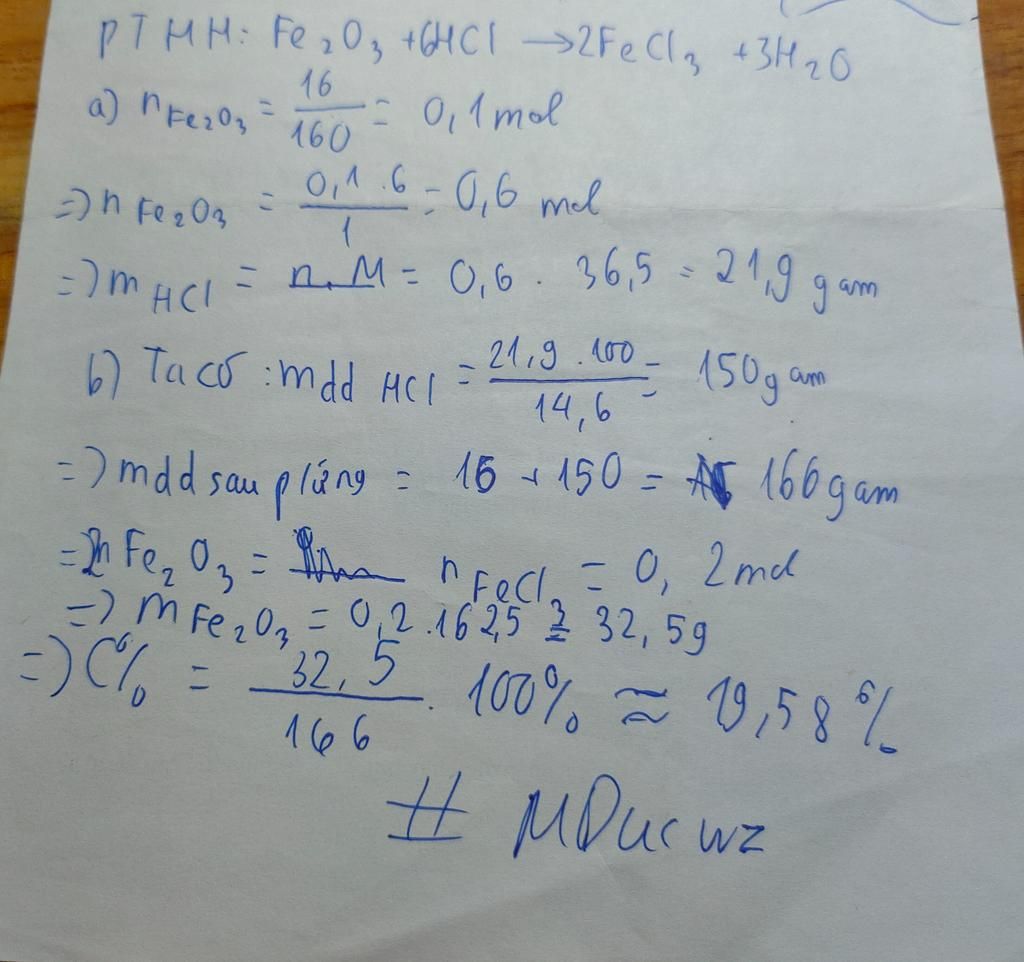 PTHH: Fe₂O₃ +6HCl →2FeCl₃ +3H₂O
a) nFe₂O₃ = 16/160 = 0,1mol
=> nFe₂O₃ = 0,1.6/1 = 0,6 mol
=> mHCl = n.M = 0,6 . 36,5 = 21,9 gam
b) Ta có : mdd HCl = 21,9.100/14,6 = 150gam
=> mdd sau p/ứng = 16 + 150 = 166gam
=> 2nFe₂O₃ = nFeCl₃ = 0,2mol
=> mFe₂O₃ = 0,2.162,5 = 32,5g
=> C% = 32,5/166 . 100% ≈ 19,58%
# MDucwz